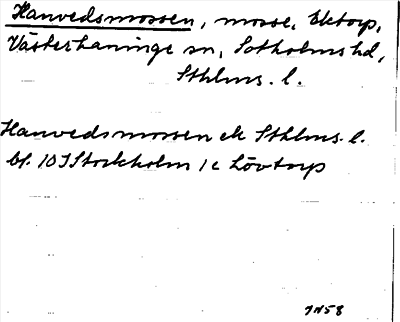 Hanvedsmossen, mosse, Ektorp,
Västerhaninge sn, Sotholms hd,
Sthlms. l.
Hanvedsmossen ek Sthlms. l.
bl. 10I Stockholm 1c Lövtorp